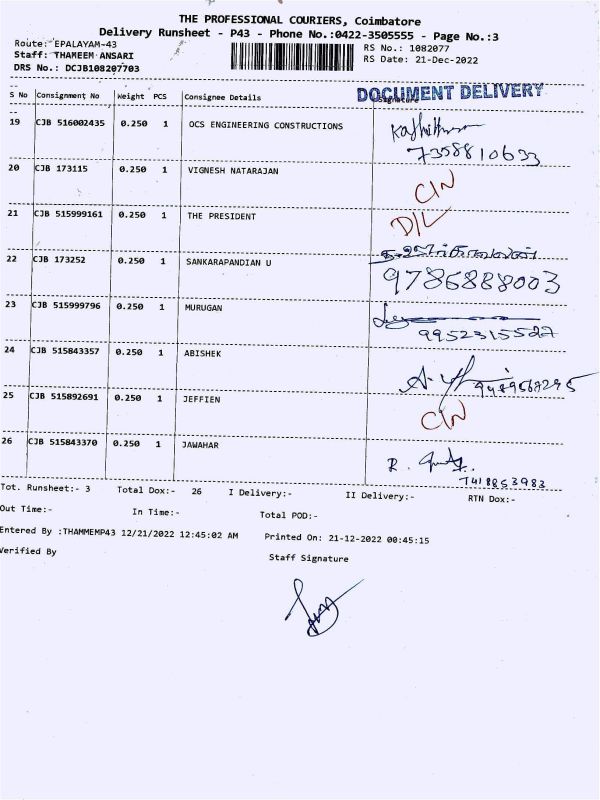 THE PROFESSIONAL COURIERS, Coimbatore
Delivery Runsheet - P43 - Phone No.:0422-3505555 - Page No.:3
Route: EPALAYAM-43 RS No.: 1082077
Staff: THAMEEM ANSARI RS Date: 21-Dec-2022
DRS No.: DCJB108207703
DOCUMENT DELIVERY
S No Consignment No Weight PCS Consignee Details Signature
19 CJB 516002435 0.250 1 OCS ENGINEERING CONSTRUCTIONS
7358810633
20 CJB 173115 0.250 1 VIGNESH NATARAJAN CIN
21 CJB 515999161 0.250 1 THE PRESIDENT D/L
22 CJB 173252 0.250 1 SANKARAPANDIAN U
9786888003
23 CJB 515999796 0.250 1 MURUGAN
9952315527
24 CJB 515843357 0.250 1 ABISHEK
25 CJB 515892691 0.250 1 JEFFIEN CIN
26 CJB 515843370 0.250 1 JAWAHAR R.
7418853983
Tot. Runsheet:- 3 Total Dox:- 26 I Delivery:- II Delivery:- RTN Dox:-
Out Time:- In Time:- Total POD:-
Entered By :THAMMEMP43 12/21/2022 12:45:02 AM Printed On: 21-12-2022 00:45:15
Verified By Staff Signature